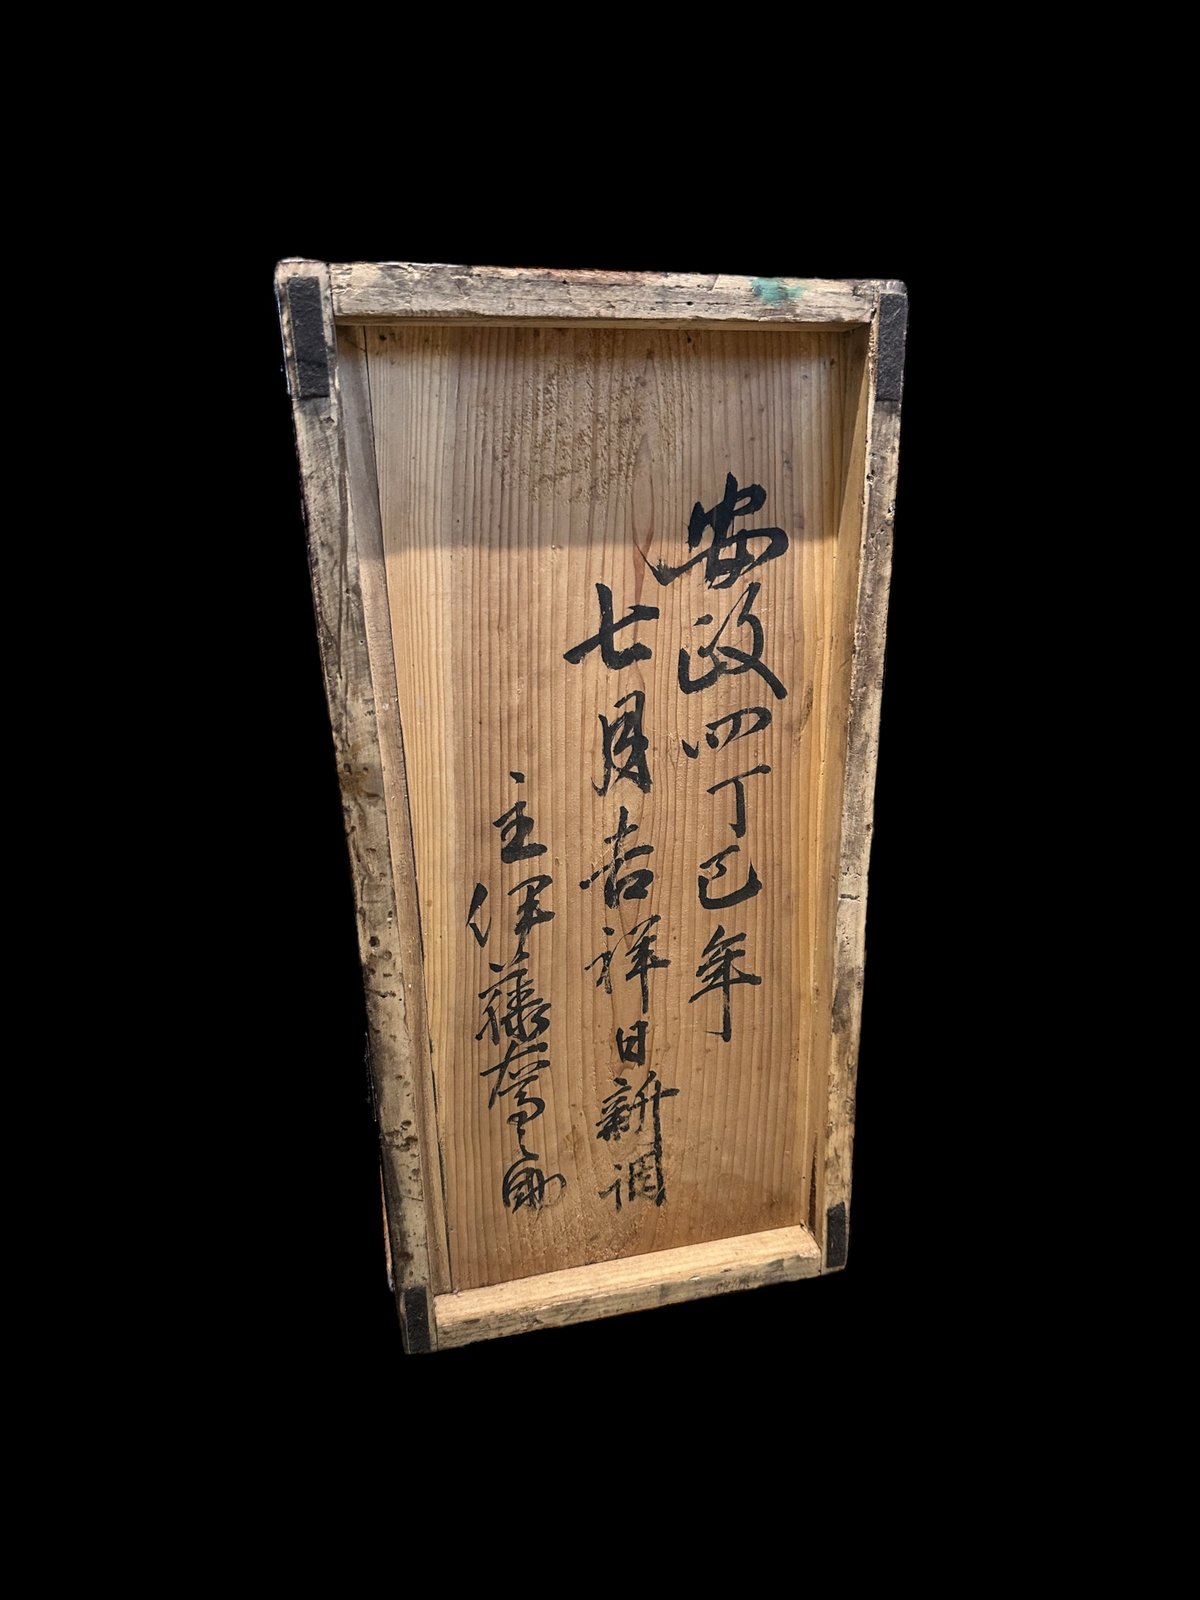 安政四丁巳年
七月吉祥日新調
主伊藤